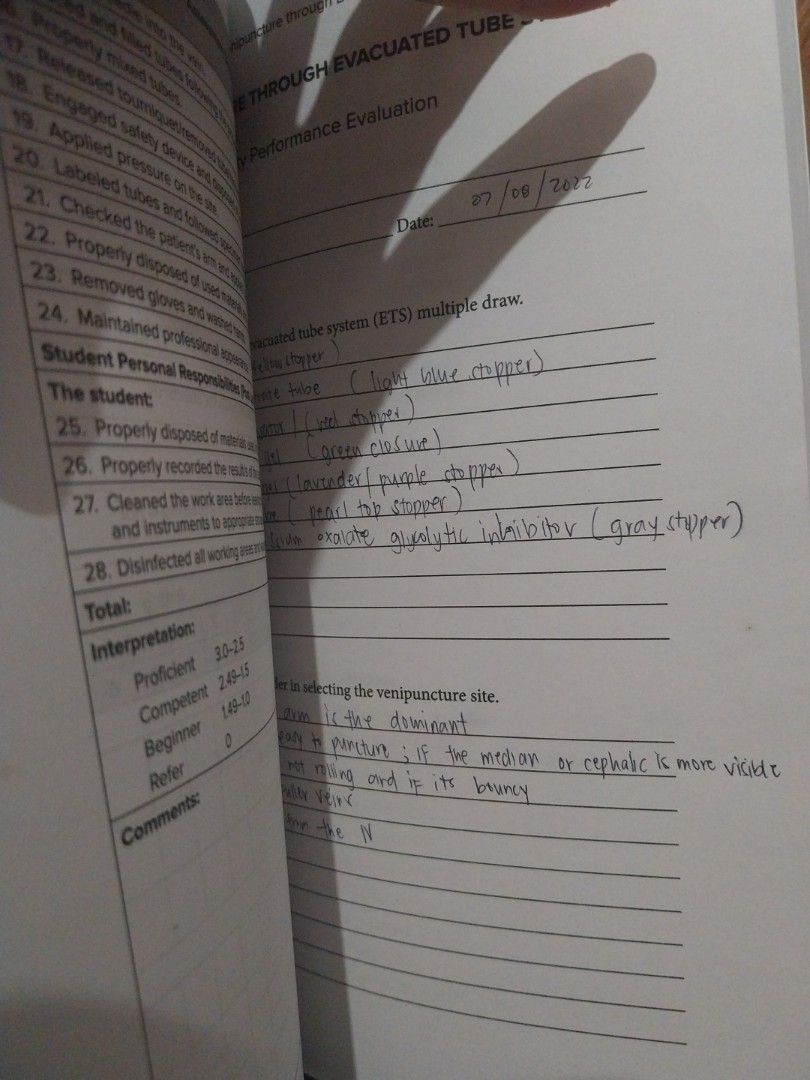 into the vein.
and filled tubes following the
Properly mixed tubes.
17. Released tourniquet/removed
18. Engaged safety device and
19. Applied pressure on the site.
20. Labeled tubes and followed
21. Checked the patient's arm and
22. Properly disposed of used materials
23. Removed gloves and washed hands.
24. Maintained professional appearance
Student Personal Responsibilities
The student:
25. Properly disposed of materials
26. Properly recorded the results of the
27. Cleaned the work area before
and instruments to appropriate
28. Disinfected all working areas
Total:
Interpretation:
Proficient 3.0–2.5
Competent 2.49–1.5
Beginner 1.49–1.0
Refer 0
Comments:
through
THROUGH EVACUATED TUBE
Performance Evaluation
Date: 07/08/2022
evacuated tube system (ETS) multiple draw.
yellow stopper)
tube (light blue stopper)
(red stopper)
gel (green closure)
(lavender/purple stopper)
(pearl top stopper)
oxalate glycolytic inhibitor (gray stopper)
in selecting the venipuncture site.
arm is the dominant
easy to puncture ; if the median or cephalic is more visible
not rolling and if its bouncy
veins
the N